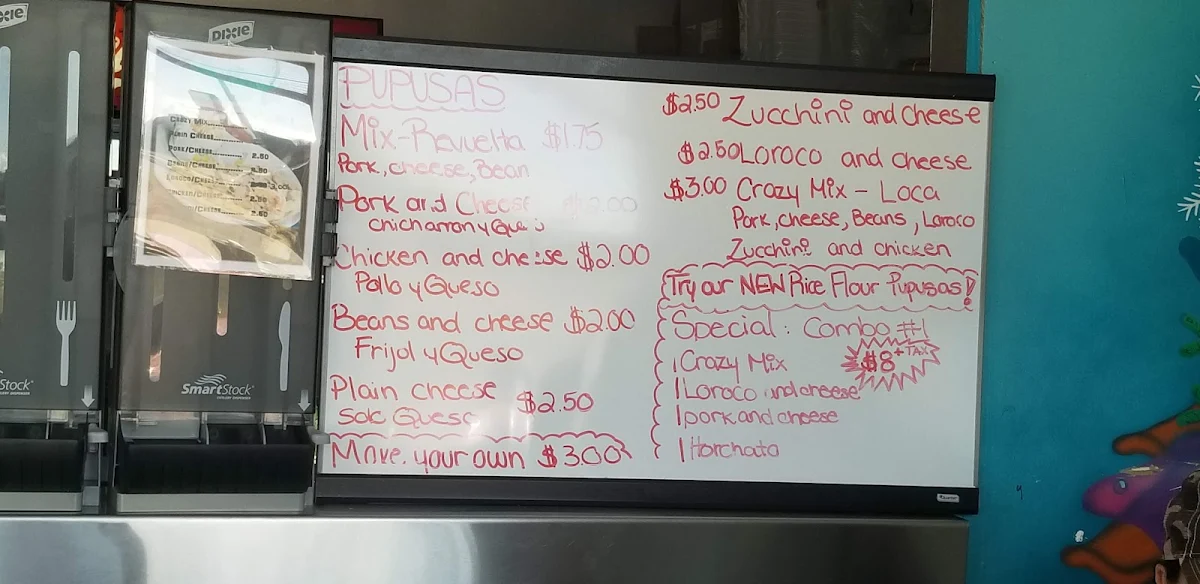 XIE
DIXIE
CRAZY MIX
PLAIN CHEESE
PORK/CHEESE 2.50
BEANS/CHEESE 2.50
LOROCO/CHEESE 3.00
CHICKEN/CHEESE 2.50
/CHEESE 2.50
Stock
SmartStock
PUPUSAS
Mix-Revuelta $1.75
Pork, cheese, Bean
Pork and Cheese $2.00
chicharron y Queso
Chicken and cheese $2.00
Pollo y Queso
Beans and cheese $2.00
Frijol y Queso
Plain cheese $2.50
Solo Queso
Make your own $3.00
$2.50 Zucchini and cheese
$2.50 Loroco and cheese
$3.00 Crazy Mix - Loca
Pork, cheese, Beans, Loroco
Zucchini and chicken
Try our NEW Rice Flour Pupusas!
Special: Combo #1
1 Crazy Mix $8 + TAX
1 Loroco and cheese
1 pork and cheese
1 Horchata